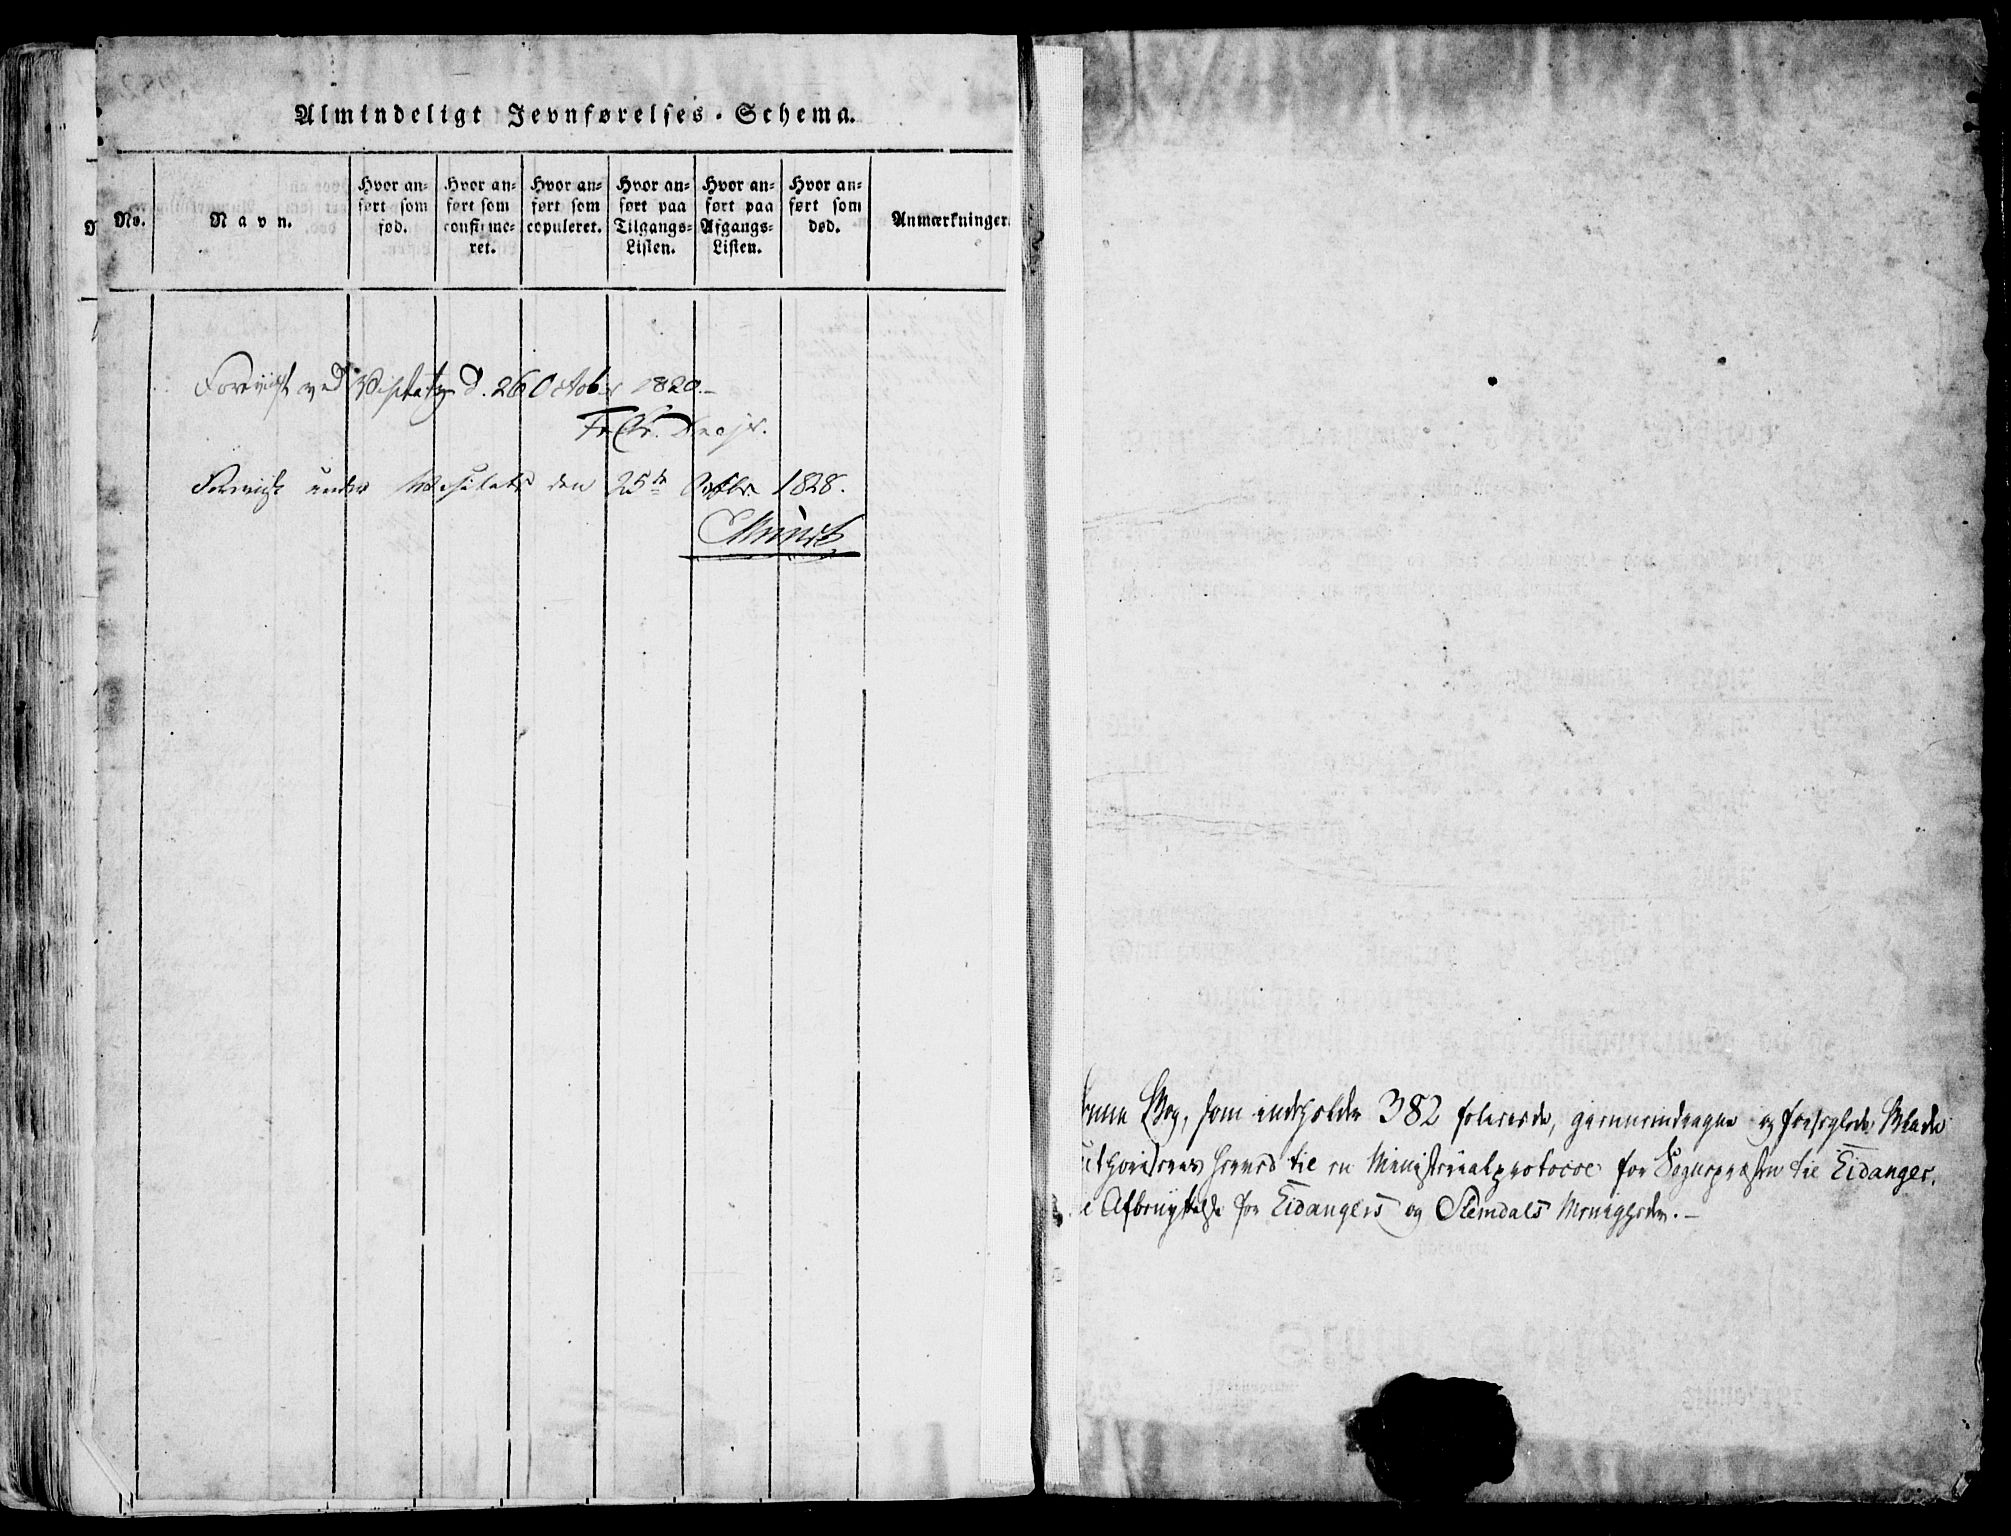 Almindeligt Jevnførelses-Schema.
No.
Navn.
Hvor an-
ført som
fød.
Hvor an-
ført som
confirme-
ret.
Hvor an-
ført som
copuleret.
Hvor an-
ført paa
Tilgangs-
Listen.
Hvor an-
ført paa
Afgangs-
Listen.
Hvor an-
ført som
død.
Anmærkninger.
Foreviist ved Visitatz d. 26 October 1820.-
Fr. Ch.
Foreviist under Visitats den 25de Octbr. 1828.
Munch
Bog, som indeholder 382 folierede, gjennemdragne og forseglede Blade
herved til en Ministerialprotocol for Sognepræsten til Eidanger.
Afbenyttelse for Eidangers og Slemdals Menigheder.-